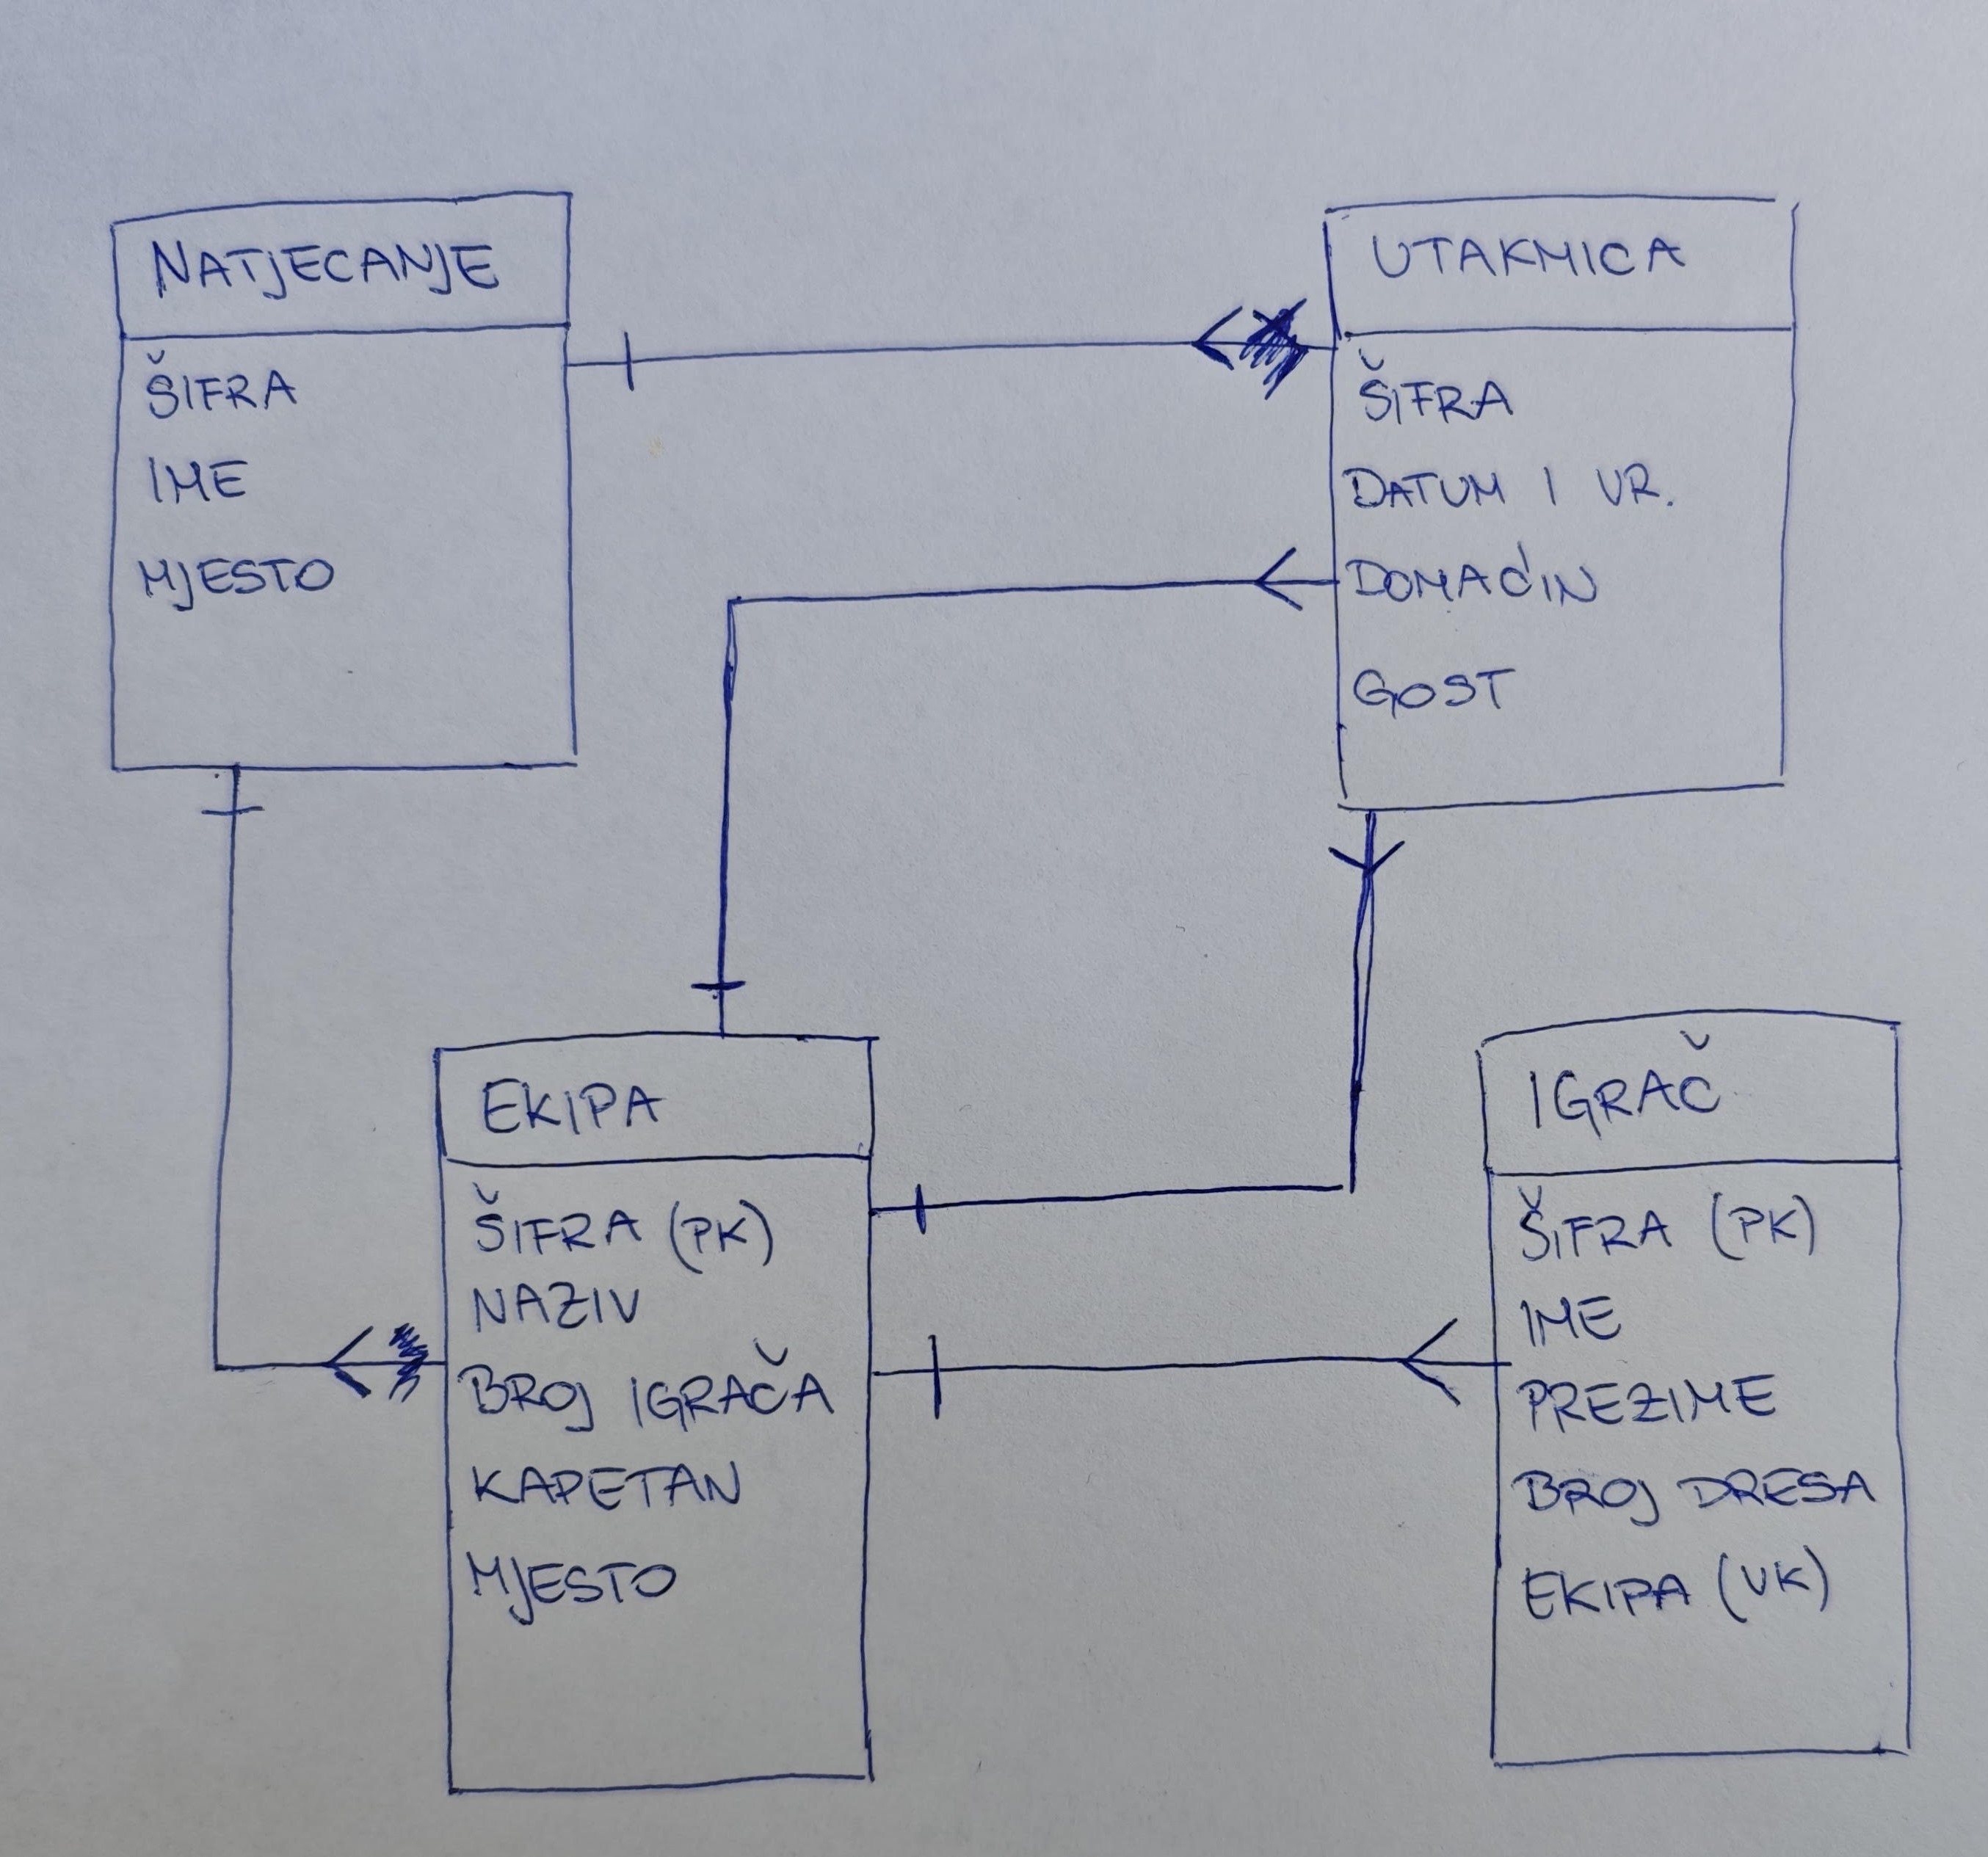 NATJECANJE
ŠIFRA
IME
MJESTO
UTAKMICA
ŠIFRA
DATUM I VR.
DOMAĆIN
GOST
EKIPA
ŠIFRA (PK)
NAZIV
BROJ IGRAČA
KAPETAN
MJESTO
IGRAČ
ŠIFRA (PK)
IME
PREZIME
BROJ DRESA
EKIPA (VK)